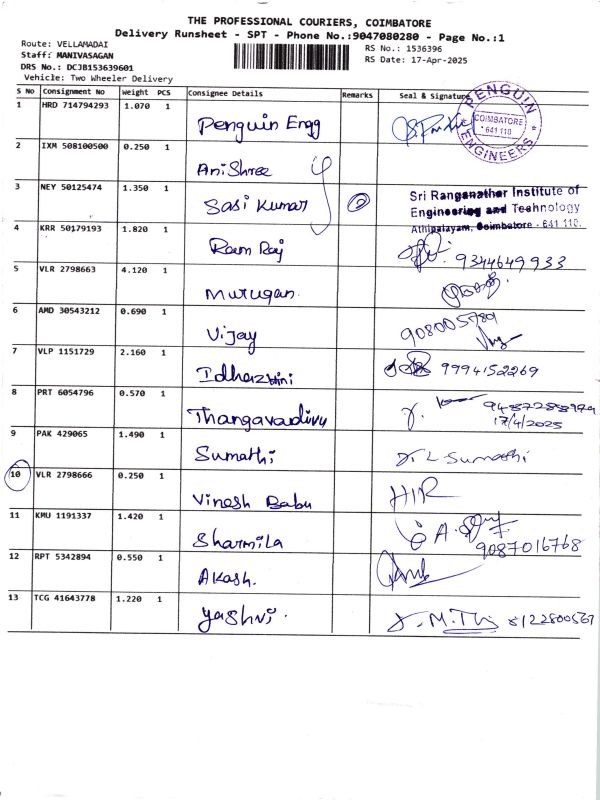 THE PROFESSIONAL COURIERS, COIMBATORE
Delivery Runsheet - SPT - Phone No.:9047080280 - Page No.:1
Route: VELLAMADAI
Staff: MANIVASAGAN
DRS No.: DCJB153639601
Vehicle: Two Wheeler Delivery
RS No.: 1536396
RS Date: 17-Apr-2025
S No Consignment No Weight PCS Consignee Details Remarks Seal & Signature
1 HRD 714794293 1.070 1 Penguin Engg
PENGUIN ENGINEERS COIMBATORE 641 110
2 IXM 508100500 0.250 1 Ani Shree
3 NEY 50125474 1.350 1 Sasi Kumar
Sri Ranganathar Institute of
Engineering and Technology
Athipalayam, Coimbatore - 641 110.
4 KRR 50179193 1.820 1 Ram Raj 9344649933
5 VLR 2798663 4.120 1 Murugan
6 AMD 30543212 0.690 1 Vijay 9080057801
7 VLP 1151729 2.160 1 Idhazhini 9994152269
8 PRT 6054796 0.570 1 Thangavadivu
17/4/2025
9 PAK 429065 1.490 1 Sumathi L Sumathi
10 VLR 2798666 0.250 1 Vinesh Babu
11 KMU 1191337 1.420 1 Sharmila 9087016768
12 RPT 5342894 0.550 1 Akash.
13 TCG 41643778 1.220 1 Yashvi. 8122800567